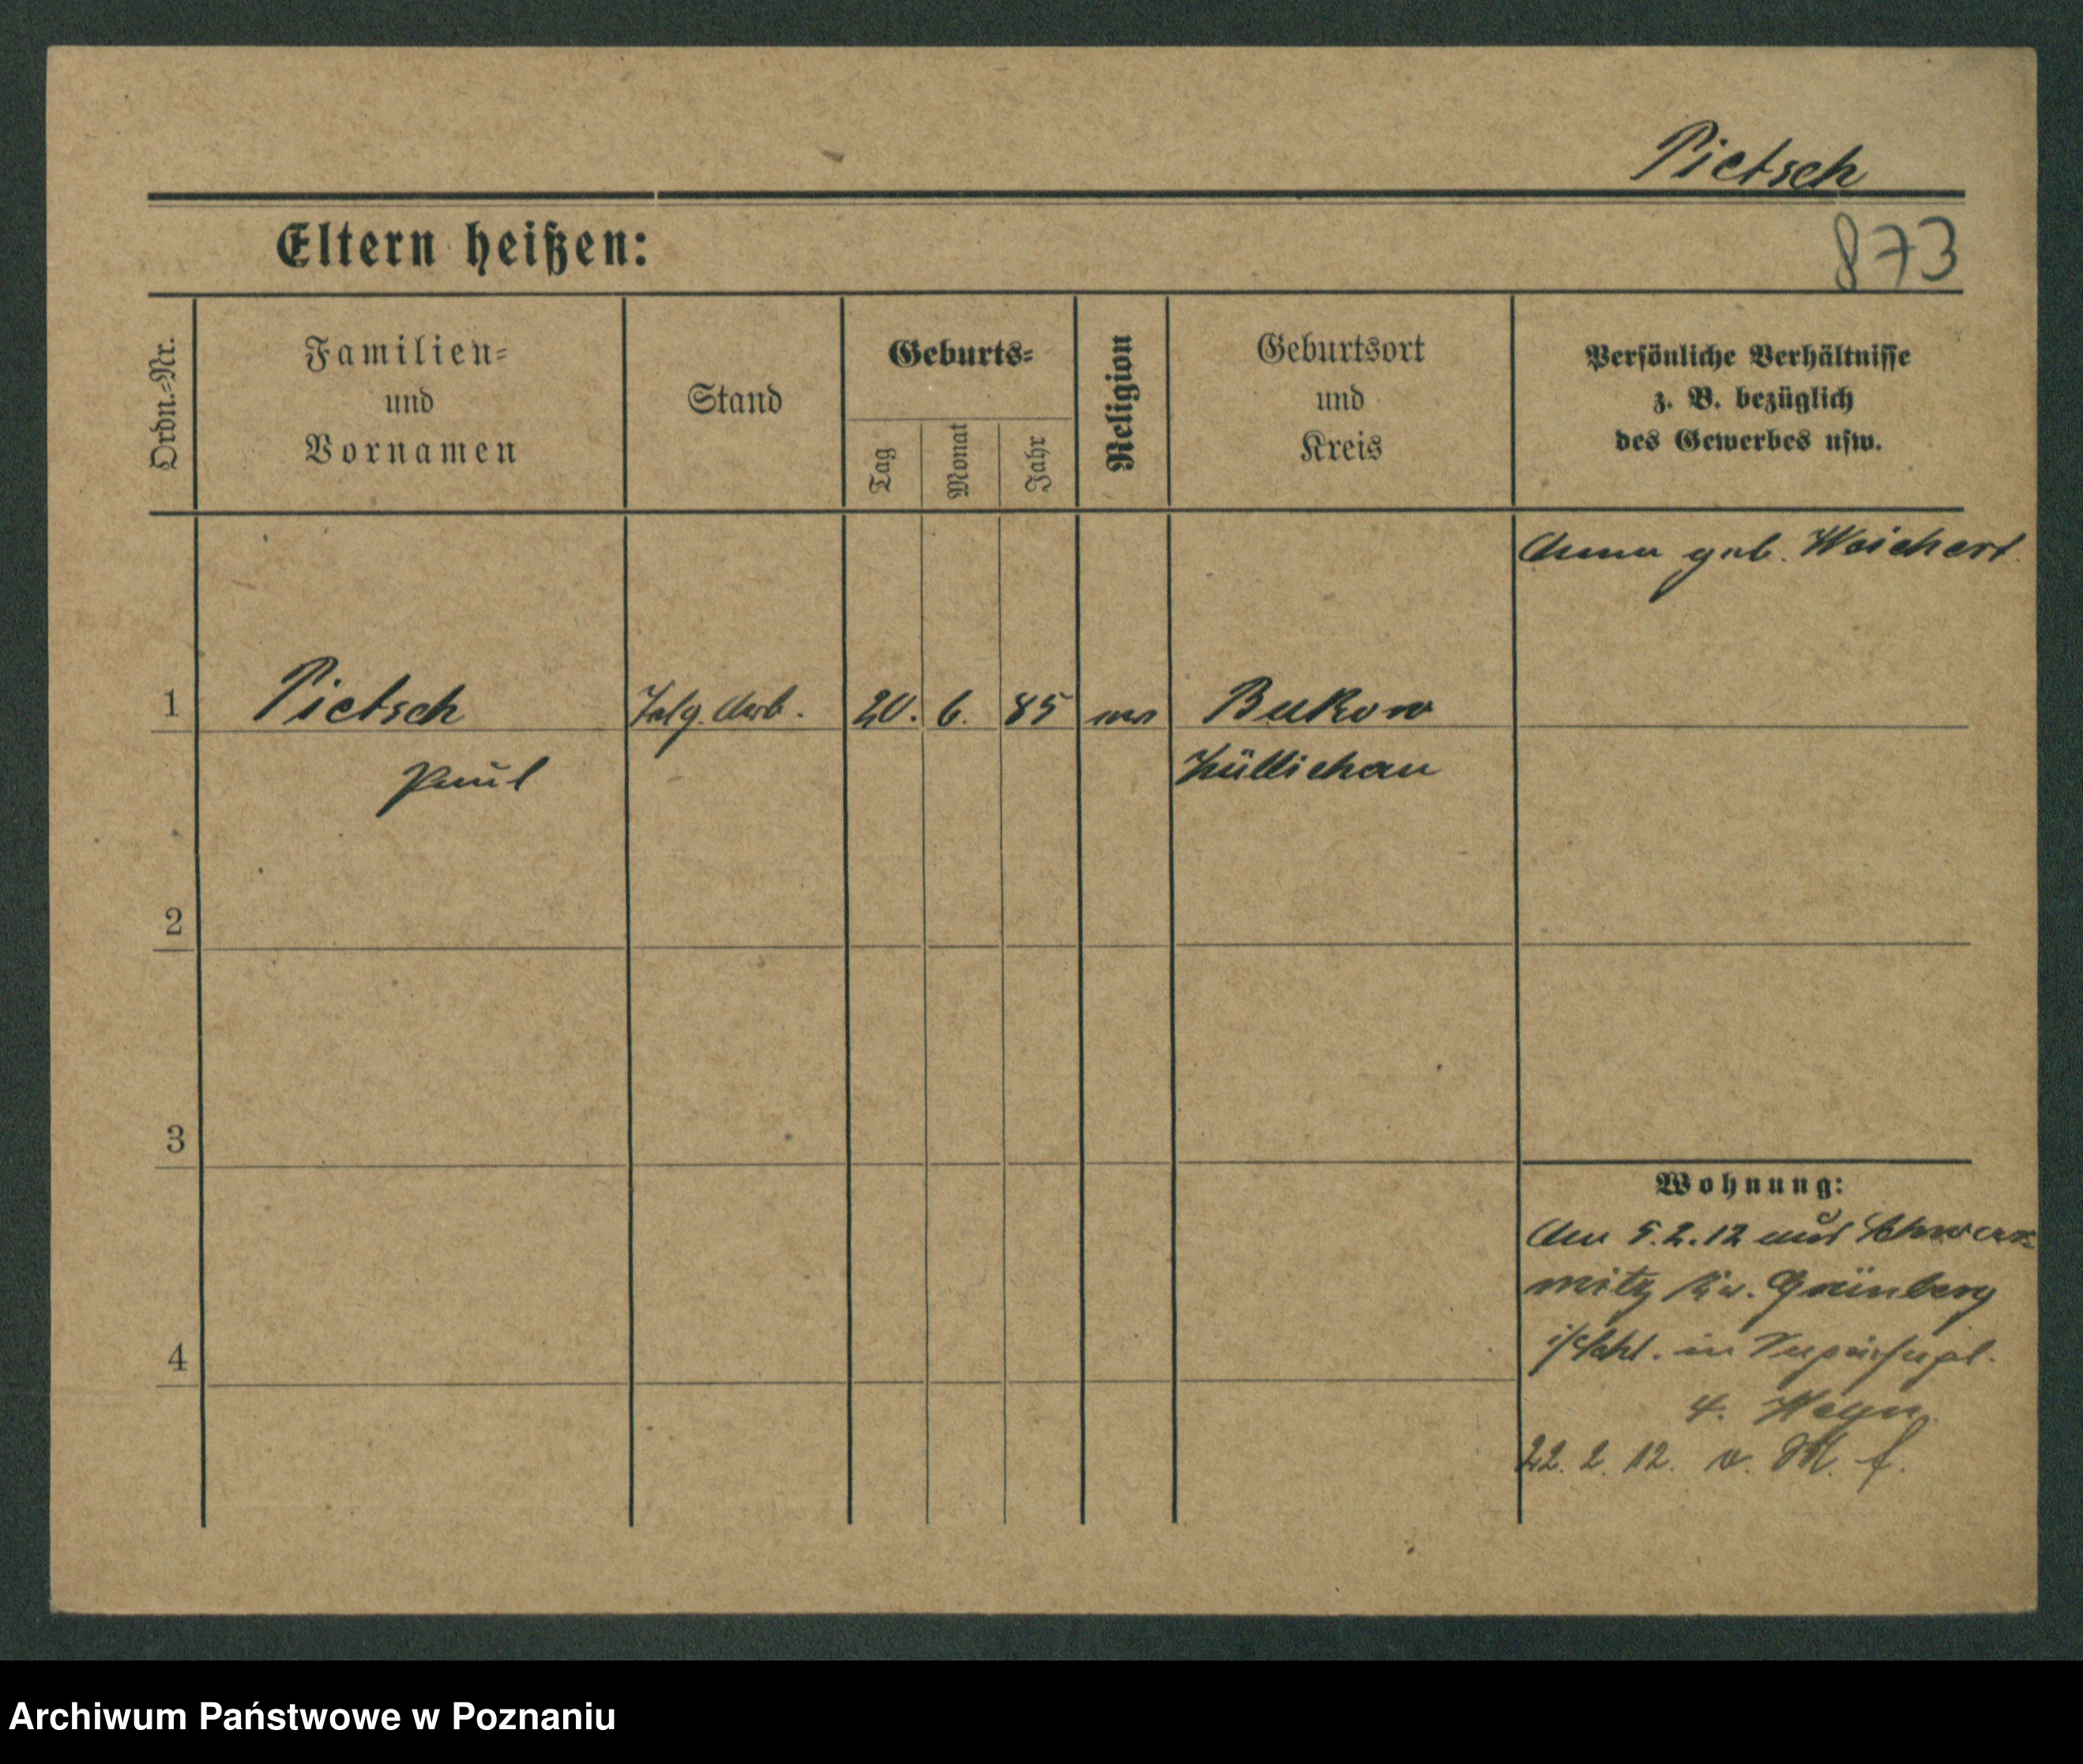 Pietsch
Eltern heißen:
873
Ordn.=Nr.
Familien=
und
Vornamen
Stand
Geburts=
Tag
Monat
Jahr
Religion
Geburtsort
und
Kreis
Persönliche Verhältnisse
z. B. bezüglich
des Gewerbes usw.
Anna geb. Weichert
1
Pietsch
Arb.
20.
6.
85
Bukow
Paul
Züllichau
2
3
4
Wohnung:
An 5.2.12 aus Schwar=
mitz Kr. Grünberg
i/Schl. in
4.
22. 2. 12. v. M. f.
Archiwum Państwowe w Poznaniu